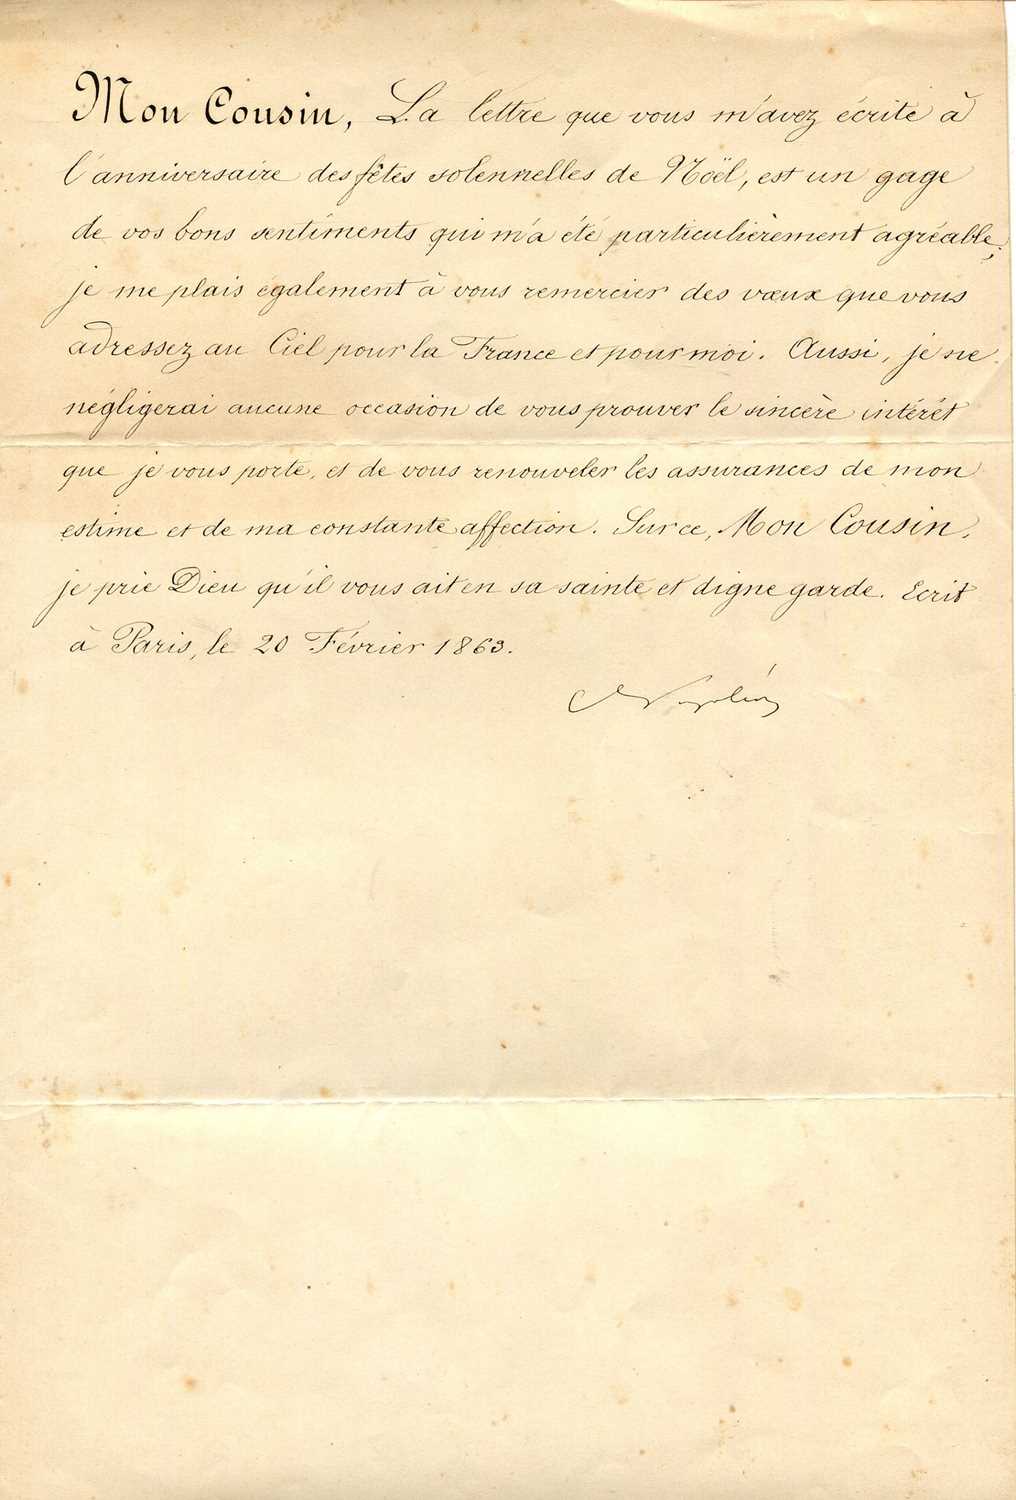 Mon Cousin, La lettre que vous m'avez écrite à
l'anniversaire des fêtes solennelles de Noël, est un gage
de vos bons sentiments qui m'a été particulièrement agréable;
je me plais également à vous remercier des vœux que vous
adressez au Ciel pour la France et pour moi. Aussi, je ne
négligerai aucune occasion de vous prouver le sincère intérêt
que je vous porte, et de vous renouveler les assurances de mon
estime et de ma constante affection. Sur ce, Mon Cousin,
je prie Dieu qu'il vous ait en sa sainte et digne garde. Ecrit
à Paris, le 20 Février 1863.
Napoléon